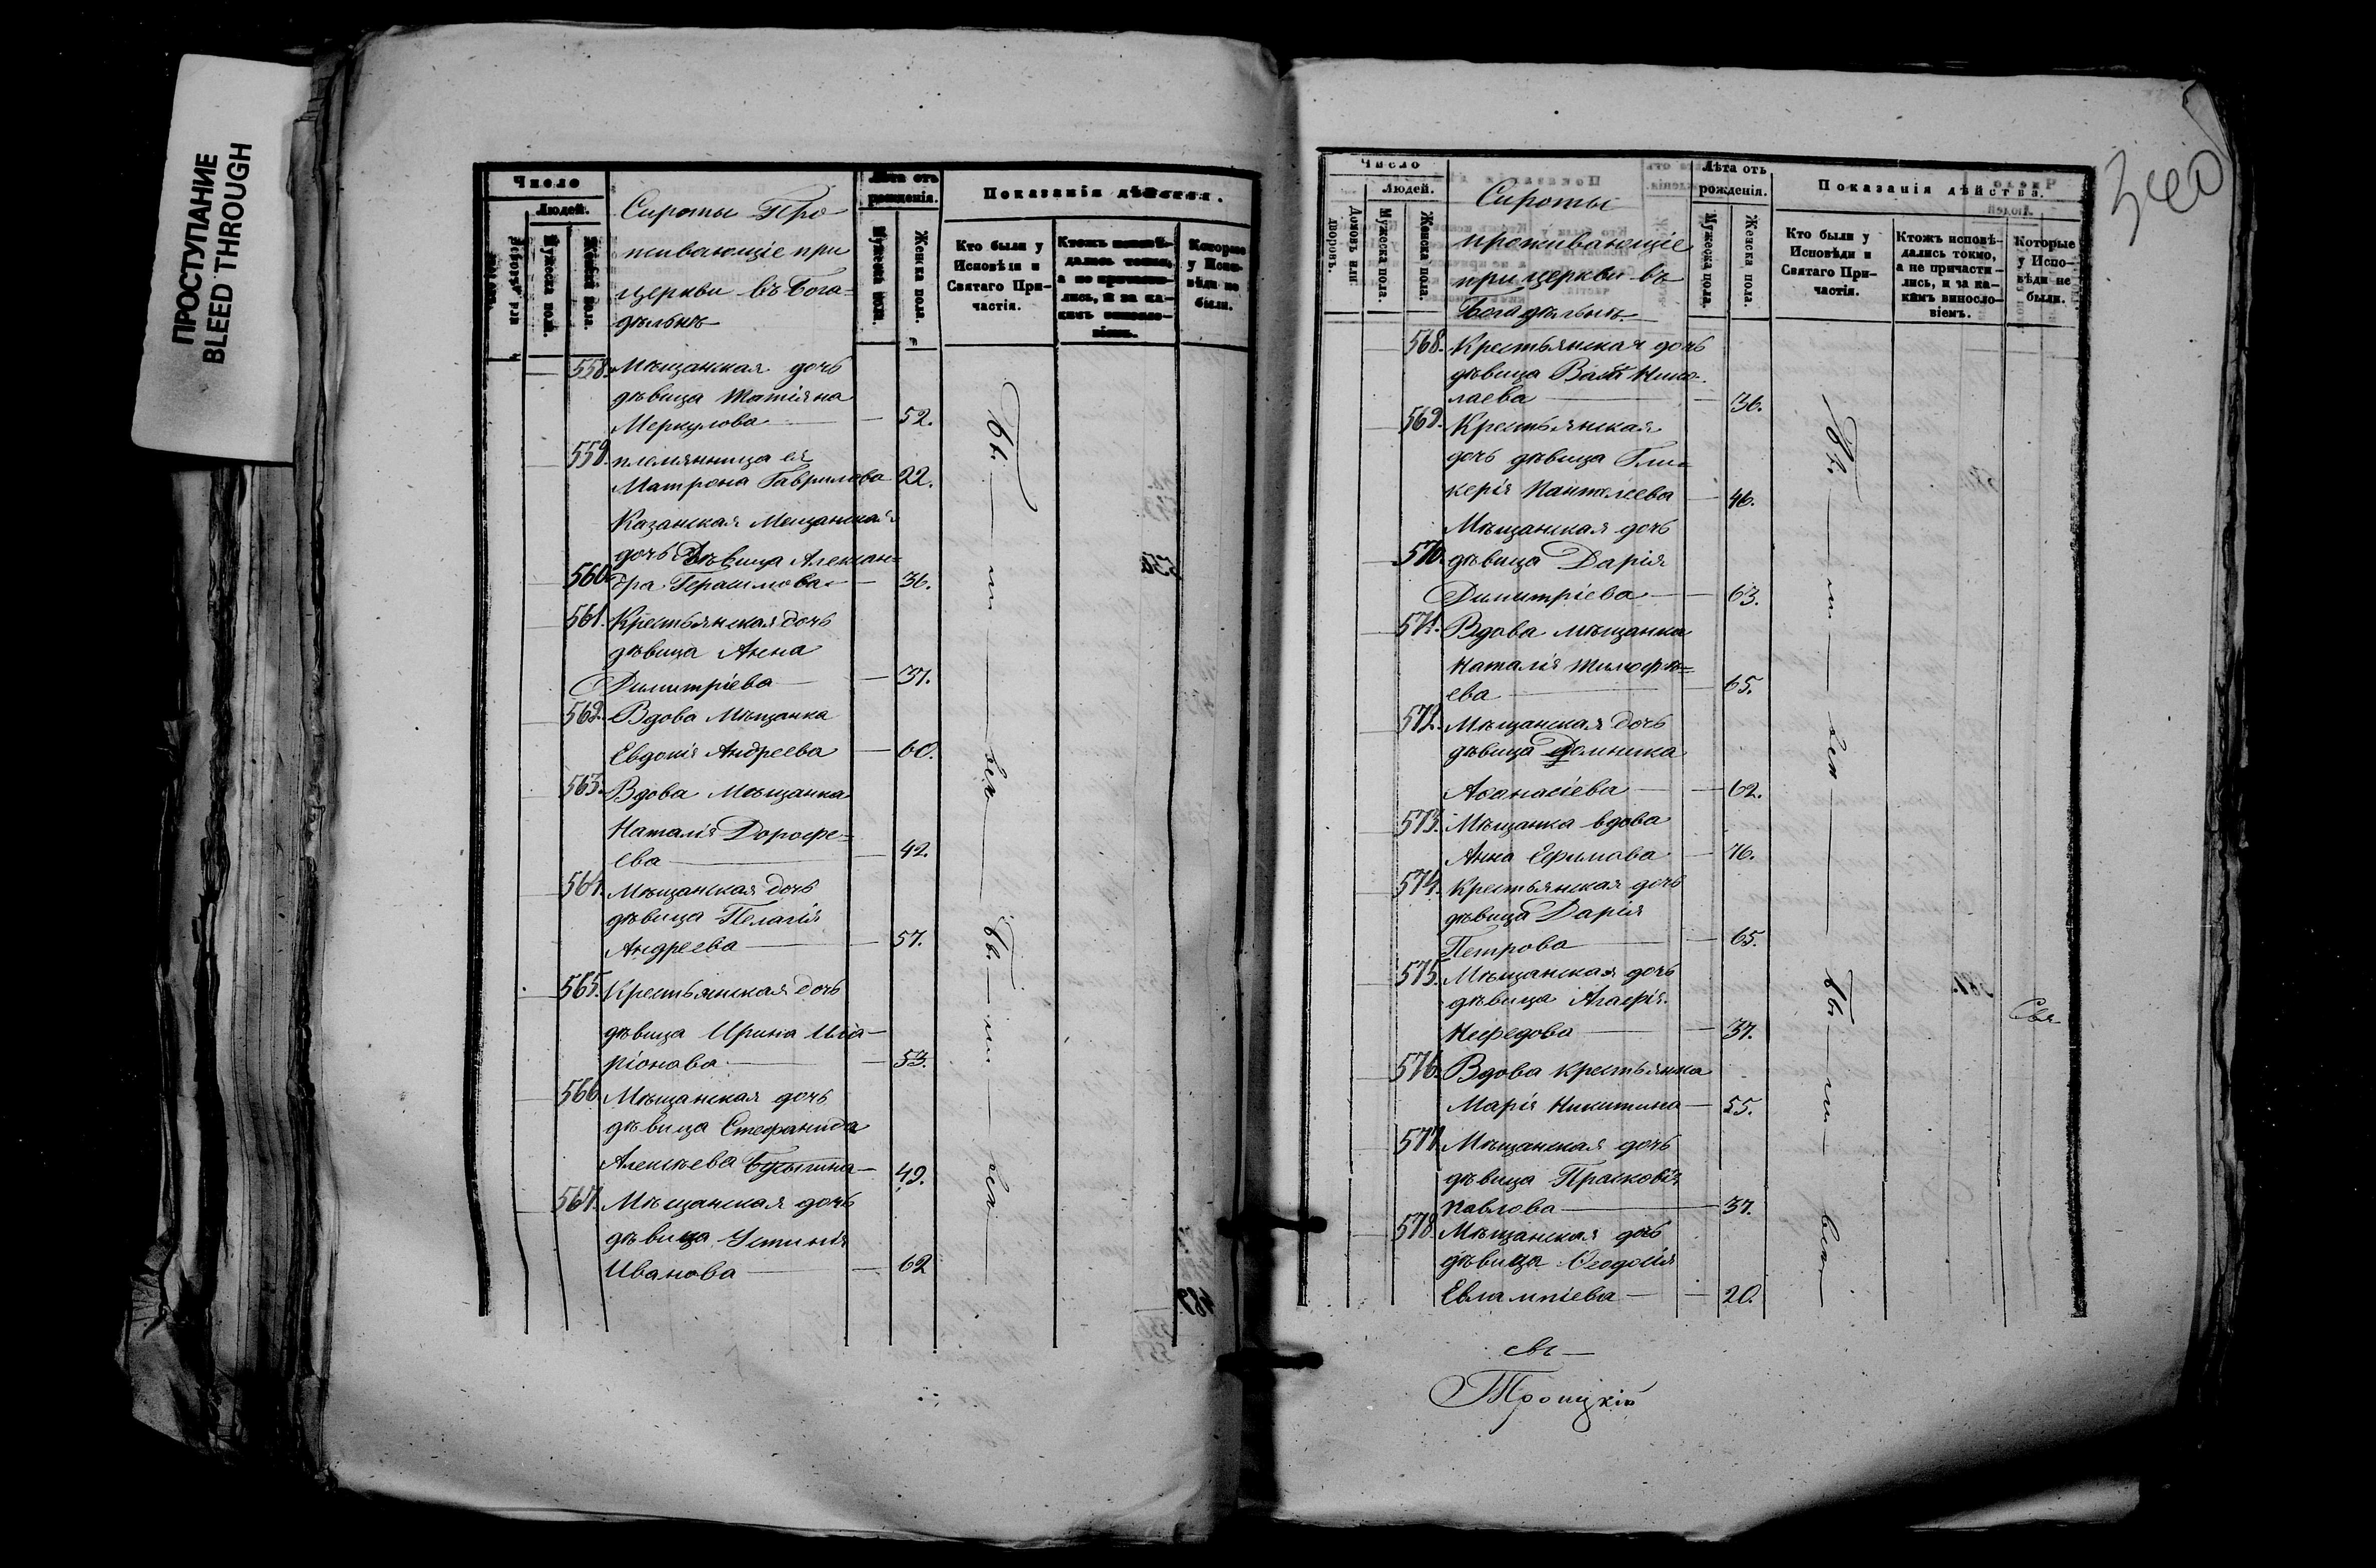 ПРОСТУПАНИЕ
BLEED THROUGH
Число
Людей.
Мужеска пола.
Женска пола.
Сироты Про
живающіе при
церкви въ Бога=
дѣльнѣ
Лѣта отъ
рожденія.
Мужеска пола.
Женска пола.
Показанія дѣйства.
Кто были у
Исповѣди и
Святаго При-
частія.
Ктожъ исповѣ-
дались токмо,
а не причасти-
лись, и за ка-
кимъ винсло-
віемъ.
Которые
у Испо-
вѣди не
были.
558. Мѣщанская дочь
дѣвица Татіяна
Меркулова — 52.
559. племянница ея
Матрона Гаврилова 22.
Казанская Мещанская
дочь Дѣвица Алексан=
560. дра Герасимова — 36.
561. Крестьянская дочь
дѣвица Анна
Димитріева — 37.
562. Вдова Мѣщанка
Евдокія Андреева — 60.
563. Вдова Мѣщанка
Наталія Дорофе=
ева — 42.
564. Мѣщанская дочь
дѣвица Пелагія
Андреева — 57.
565. Крестьянская дочь
дѣвица Ирина Ила-
ріонова — 53.
566. Мѣщанская дочь
дѣвица Стефанида
Алексѣева — 49.
567. Мѣщанская дочь
дѣвица Устинія
Иванова — 62
Бы — ли — всѣ
Бы — ли — всѣ
Число
Людей.
Домовъ или
дворовъ.
Мужеска пола.
Женска пола.
Сироты
проживающіе
при церкви въ
Богадѣльнѣ
Лѣта отъ
рожденія.
Мужеска пола.
Женска пола.
Показанія дѣйства.
Кто были у
Исповѣди и
Святаго При-
частія.
Ктожъ исповѣ-
дались токмо,
а не причасти-
лись, и за ка-
кимъ виносло-
віемъ.
Которые
у Испо-
вѣди не
были.
568. Крестьянская дочь
дѣвица Васса Нико-
лаева — 36.
569. Крестьянская
дочь дѣвица Гли=
керія Пантелеева — 46.
Мѣщанская дочь
570. дѣвица Дарія
Димитріева — 63.
571. Вдова мѣщанка
Наталія Тимофѣ=
ева — 65.
572. Мѣщанская дочь
дѣвица Домника
Аѳанасіева — 62.
573. Мѣщанка вдова
Анна Ефимова — 76.
574. Крестьянская дочь
дѣвица Дарія
Петрова — 65.
575. Мѣщанская дочь
дѣвица Агафія
Нефедова — 37.
576. Вдова крестьянка
Марія Никитина — 55.
577. Мѣщанская дочь
дѣвица Прасковія
Павлова — 37.
578. Мѣщанская дочь
дѣвица Ѳеодосія
Евлампіева — 20.
Бы — ли — всѣ
Бы — ли — всѣ
Свя
Троицкій